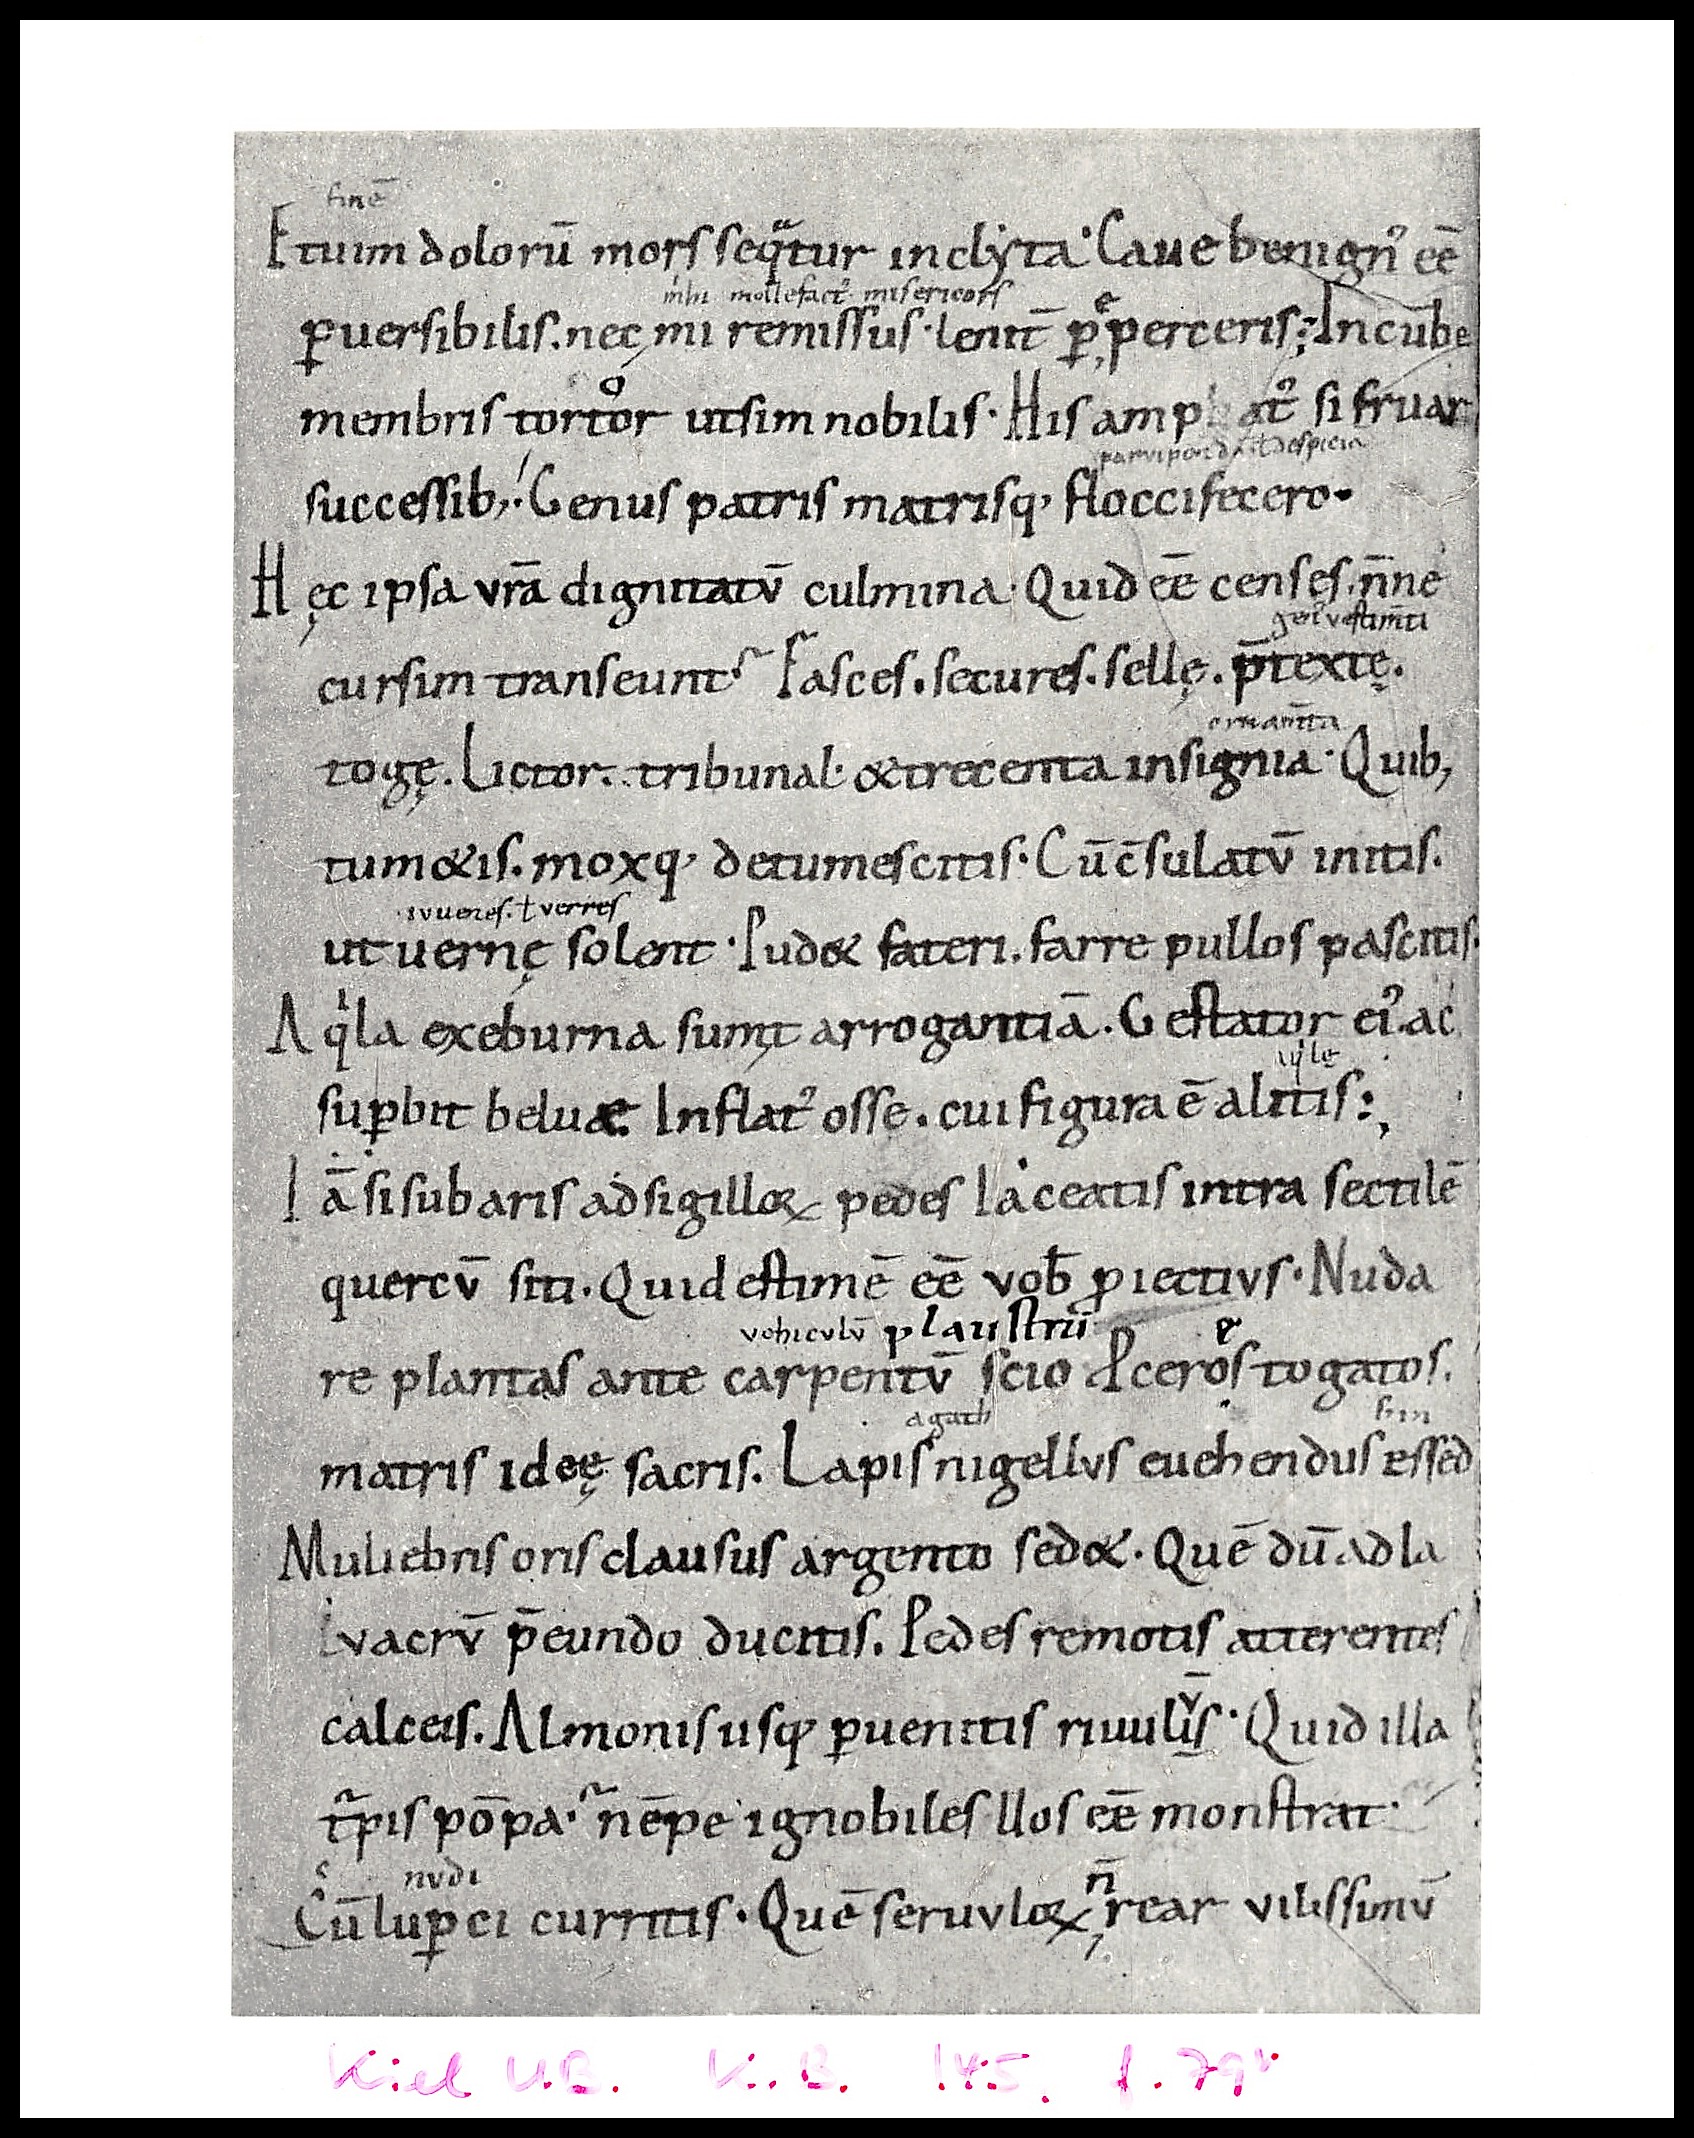 finē
Etuim dolorū morſ ſeqᵃtur inclyta· Caue benignꝰ eē
mihi mollefactꝰ miſericorſ
ꝑuerſibiliſ. nec mi remiſſuſ· lenit̄ ꝑ perceriſ; Incūbe
membriſ tortor utſim nobiliſ· Hiſ amplatꝰ ſi fruar
parvipend ł deſpicia
ſucceſſib; Genuſ patriſ matriſq; flocciſecero·
Hęc ipſa vr̄a dignitatū culmina· Quid eē cenſeſ. n̄ne
genꝰ veſtim̄ti
curſim tranſeunt Faſceſ. ſecureſ. ſellę. p̄textę.
ornam̄ta
togę. Lictor. tribunal· &trecenta inſignia· Quib;
tum&iſ. moxq; detumeſcitiſ· Cūc̄ſulatū initiſ.
iuueneſ. ł verreſ
ut uernę ſolent· Pud& fateri. farre pulloſ paſcitiſ.
Aqⁱla exeburna ſumit arrogantiā. Geſtator eiꝰ. ac
aqⁱlę
ſuꝑbit beluæ Inflatꝰ oſſe. cui figura ē alitiſ:,
Iā ſi ſub ariſ ad ſigilloꝝ pedeſ Iaceatiſ intra ſectilē
quercū ſiti· Quid eſtimē eē vob̄ ꝓiectivſ· Nuda
vehiculū plauſtrū
re plantaſ ante carpentū ſcio Pceroſ togatoſ.
agath
matriſ ideę ſacriſ. Lapiſ nigellvſ euehenduſ eſſed
Muliebriſ oriſ clauſuſ argento ſed&· Quē dū ad la
vacrū p̄eundo ducitiſ. Pedeſ remotiſ atterenteſ
calceiſ. Almoniſ uſq; ꝑuenitiſ riuuliſ· Quid illa
v
tᵘrpiſ pōpa· nēpe ignobileſ lloſ eē monſtrat·
nvdi
Cū luꝑci curritiſ· Quē ſeruvloꝝ n̄ rear viliſſimū
Kiel U.B. K.B. 145. f. 79ᵛ